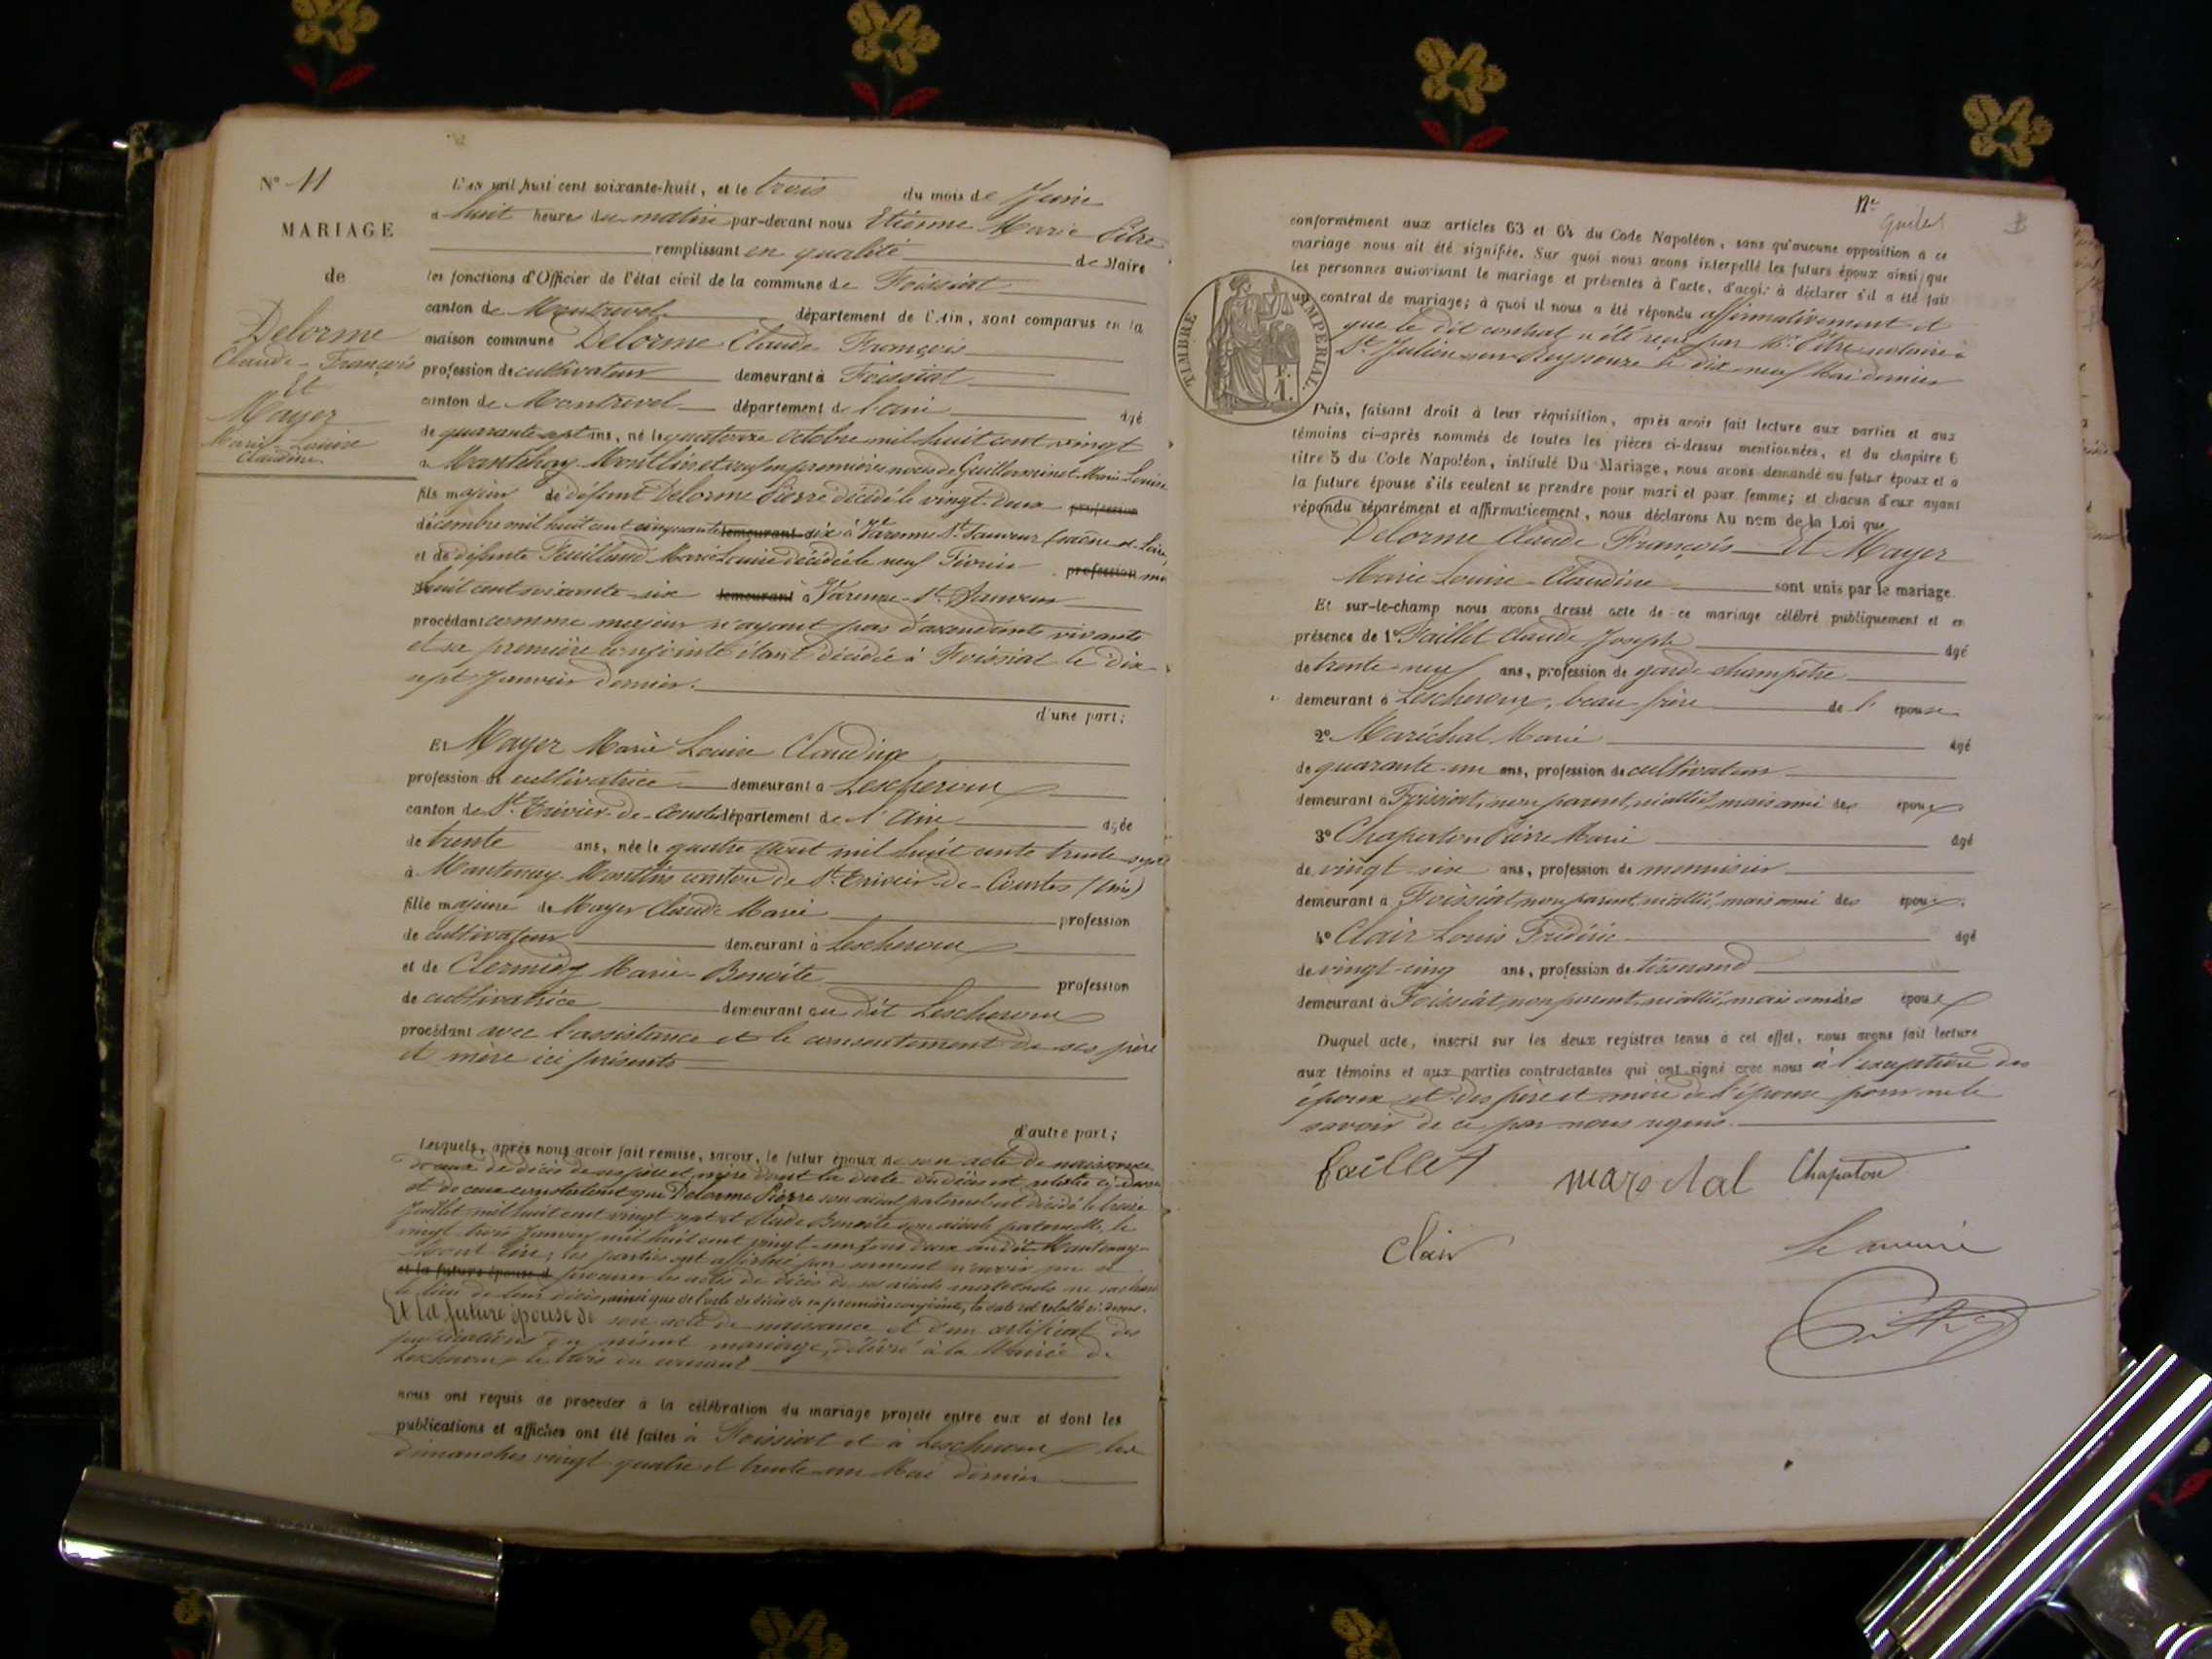 N° 11
MARIAGE
de
Delorme
Claude-François
Et
Mayer
Marie-Louise
Claudine
L'an mil huit cent soixante-huit, et le trois du mois de Juin
à huit heures du matin par-devant nous Etienne Marie Pitre
remplissant en qualité de Maire
les fonctions d'Officier de l'état civil de la commune de Foissiat
canton de Montrevel département de l'Ain, sont comparus en la
maison commune Delorme Claude François
profession de cultivateur demeurant à Foissiat
canton de Montrevel département de l'ain âgé
de quarante-sept ans, né le quatorze Octobre mil huit cent vingt
à Mantenay-Montlin et veuf en premières noces de Marie Louise
fils majeur de défunt Delorme Pierre décédé le vingt-deux profession
décembre mil huit cent cinquante demeurant six à Varenne St Sauveur (saône et Loire
et de défunte Feuilland Marie Louise décédée le neuf Février profession mil
huit cent soixante-six demeurant à Varenne-St Sauveur
procédant comme majeur n'ayant pas d'ascendants vivants
et sa première conjointe étant décédée à Foissiat le dix
sept Janvier dernier.
d'une part;
Et Mayer Marie Louise Claudine
profession de cultivatrice demeurant à Lescheroux
canton de St Trivier-de-Courtes département de l'Ain âgée
de trente ans, née le quatre août mil huit cents trente-sept
à Mantenay-Montlin canton de St Trivier-de-Courtes (Ain)
fille majeure de Mayer Claude Marie profession
de cultivateur demeurant à Lescheroux
et de Clermidy Marie-Benoite profession
de cultivatrice demeurant au dit Lescheroux
procédant avec l'assistance et le consentement de ses père
et mère ici présents
d'autre part;
Lesquels, après nous avoir fait remise, savoir, le futur époux de son acte de naissance
de ceux de décès de ses père et mère dont la date du décès est relatée ci-dessus
et de ceux constatant que Delorme Pierre son aïeul paternel est décédé le treize
Juillet mil huit cent vingt sept et Benoite son aïeule paternelle, le
vingt trois Janvier mil huit cent vingt-un tous deux au dit Mantenay-
Mont lin; les parties ont affirmé par serment n'avoir pu se
et la future épouse d procurer les actes de décès de ses aïeuls maternels ne sachant
le lieu de leur décès, ainsi que de l'acte de décès de sa première conjointe, la date est relatée ci-dessus.
Et la future épouse de son acte de naissance et d'un certificat des
publications du présent mariage, délivré à la Mairie de
Lescheroux le trois du courant
nous ont requis de procéder à la célébration du mariage projeté entre eux et dont les
publications et affiches ont été faites à Foissiat et à Lescheroux les
dimanches vingt quatre et trente-un Mai dernier
conformément aux articles 63 et 64 du Code Napoléon, sans qu'aucune opposition à ce
mariage nous ait été signifiée. Sur quoi nous avons interpellé les futurs époux ainsi que
les personnes autorisant le mariage et présentes à l'acte, d'avoir à déclarer s'il a été fait
un contrat de mariage; à quoi il nous a été répondu affirmativement et
que le dit contrat a été reçu par Me Pitre notaire à
St Julien-sur-Reyssouze le dix neuf Mai dernier
TIMBRE IMPERIAL.
Puis, faisant droit à leur réquisition, après avoir fait lecture aux parties et aux
témoins ci-après nommés de toutes les pièces ci-dessus mentionnées, et du chapitre 6
titre 5 du Code Napoléon, intitulé Du Mariage, nous avons demandé au futur époux et à
la future épouse s'ils veulent se prendre pour mari et pour femme; et chacun d'eux ayant
répondu séparément et affirmativement, nous déclarons Au nom de la Loi que
Delorme Claude François Et Mayer
Marie Louise-Claudine sont unis par le mariage.
Et sur-le-champ nous avons dressé acte de ce mariage célébré publiquement et en
présence de 1° Paillet Claude Joseph âgé
de trente-neuf ans, profession de garde champêtre
demeurant à Lescheroux, beau frère de l' épouse
2° Maréchal Marie âgé
de quarante-un ans, profession de cultivateur
demeurant à Foissiat, non parent, ni allié, mais ami des époux
3° Chapaton Pierre Marie âgé
de vingt-six ans, profession de menuisier
demeurant à Foissiat non parent, ni allié, mais ami des époux
4° Clair Louis Frédéric âgé
de vingt-cinq ans, profession de tisserand
demeurant à Foissiat, non parent, ni allié, mais ami des époux
Duquel acte, inscrit sur les deux registres tenus à cet effet, nous avons fait lecture
aux témoins et aux parties contractantes qui ont signé avec nous à l'exception des
époux et des père et mère de l'épouse pour ne le
savoir de ce par nous requis.
Paillet marechal Chapaton
Clair Le maire